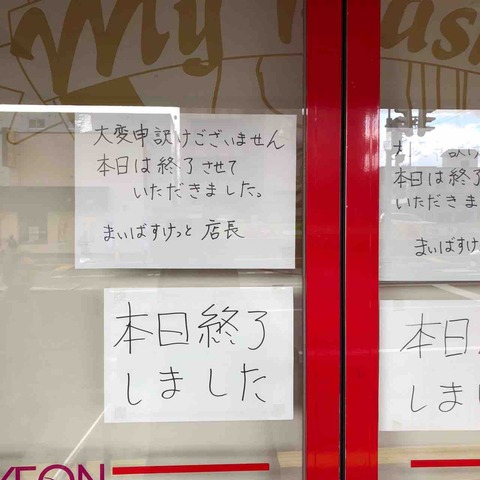 My
大変申訳けございません
本日は終了させて
いただきました。
まいばすけっと 店長
本日終了
しました
AEON
本日は終了
いただきま
まいばすけ
本日
しまし